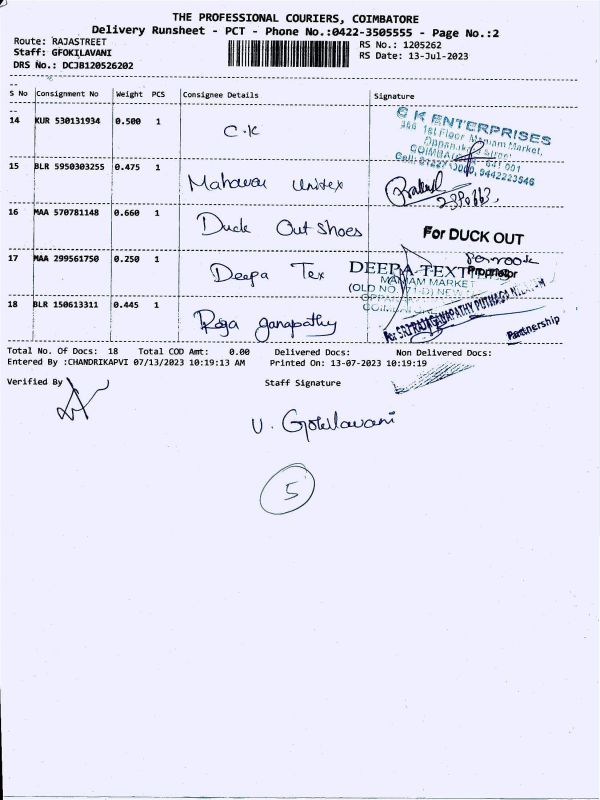 THE PROFESSIONAL COURIERS, COIMBATORE
Delivery Runsheet - PCT - Phone No.:0422-3505555 - Page No.:2
Route: RAJASTREET
RS No.: 1205262
Staff: GFOKILAVANI
RS Date: 13-Jul-2023
DRS No.: DCJB120526202
S No Consignment No Weight PCS Consignee Details Signature
14 KUR 530131934 0.500 1 C.K
C K ENTERPRISES
1st Floor Maniam Market,
15 BLR 5950303255 0.475 1 Mahaveer Unitex
16 MAA 570781148 0.660 1 Duck Out Shoes
For DUCK OUT
Proprietor
17 MAA 299561750 0.250 1 Deepa Tex
DEEPA TEXTILES
MANIAM MARKET
18 BLR 150613311 0.445 1 Raja ganapathy
For SRI RAJAGANAPATHY PUTHAGA NILAYAM
Partnership
Total No. Of Docs: 18 Total COD Amt: 0.00 Delivered Docs: Non Delivered Docs:
Entered By :CHANDRIKAPVI 07/13/2023 10:19:13 AM Printed On: 13-07-2023 10:19:19
Verified By Staff Signature
V. Gokilavani
5